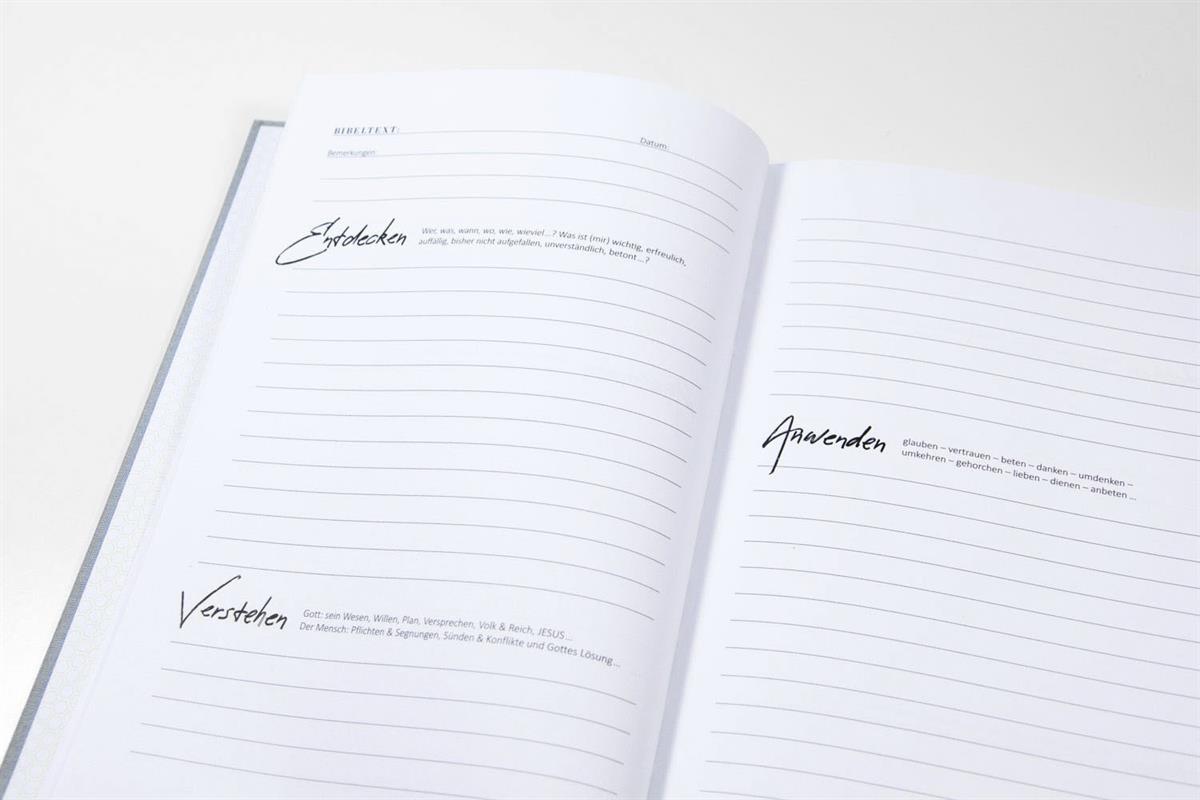 BIBELTEXT:
Datum:
Bemerkungen:
Entdecken
Wer, was, wann, wo, wie, wieviel...? Was ist (mir) wichtig, erfreulich,
auffällig, bisher nicht aufgefallen, unverständlich, betont...?
Verstehen
Gott: sein Wesen, Willen, Plan, Versprechen, Volk & Reich, JESUS...
Der Mensch: Pflichten & Segnungen, Sünden & Konflikte und Gottes Lösung...
Anwenden
glauben – vertrauen – beten – danken – umdenken –
umkehren – gehorchen – lieben – dienen – anbeten ...